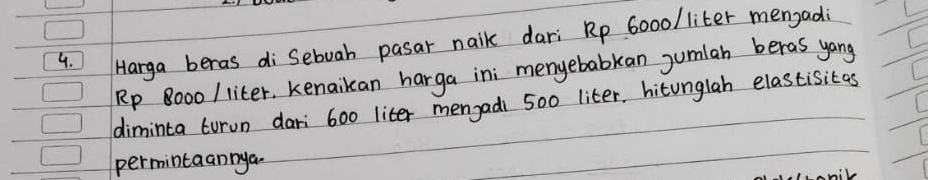 4. Harga beras di Sebuah pasar naik dari Rp 6000/liter menjadi
Rp 8000 / liter. Kenaikan harga ini menyebabkan jumlah beras yang
diminta turun dari 600 liter menjadi 500 liter. hitunglah elastisitas
permintaannya.